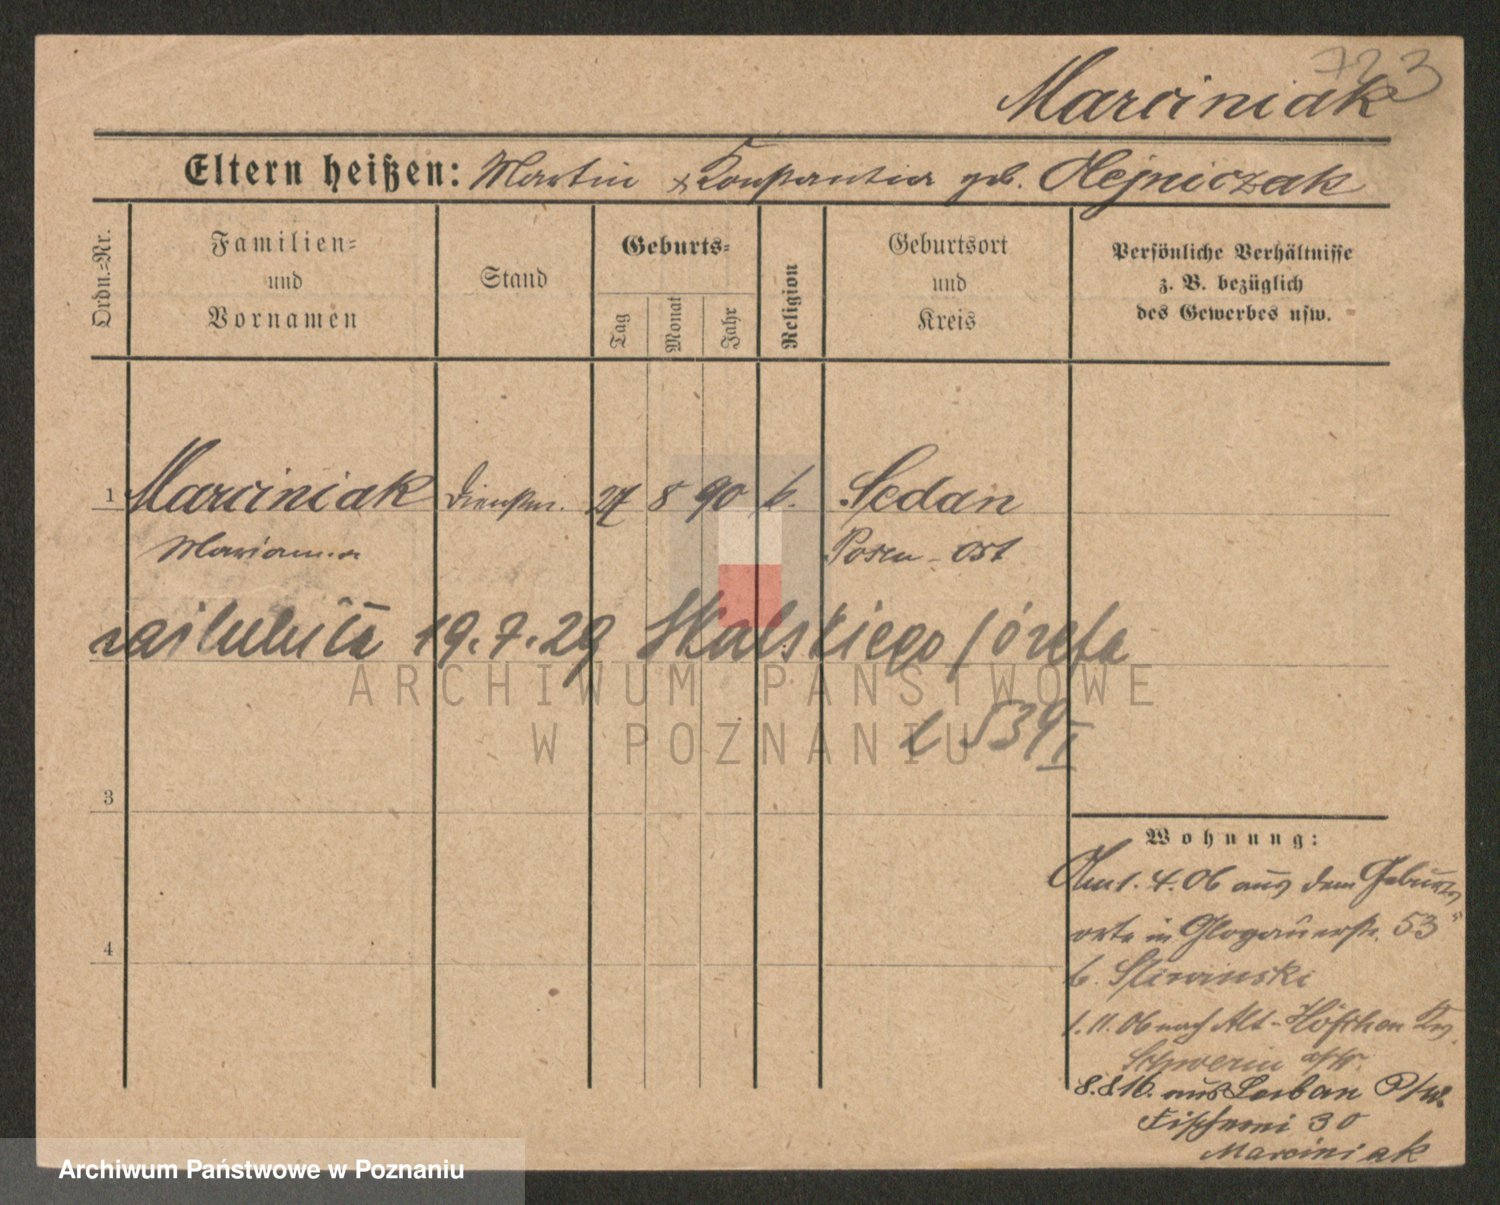 723
Marciniak
Eltern heißen: Martin & Konstantia geb. Olejniczak
Ordn.=Nr.
Familien=
und
Vornamen
Stand
Geburts=
Tag
Monat
Jahr
Religion
Geburtsort
und
Kreis
Persönliche Verhältnisse
z. B. bezüglich
des Gewerbes usw.
1 Marciniak Dienstm. 27 8 90 k. Sedan
Marianna Posen-Ost
zaślubiła 19.7.29 Skalskiego Józefa
539 I
3
4
Wohnung:
Am 1.4.06 aus dem Geburts
orte in Glogauerstr. 53
b. Sliwinski
1.11.06 nach Alt-Höfchen Krs.
Schwerin a/W.
8.8.16. aus
Fischerei 30
Marciniak
ARCHIWUM PAŃSTWOWE
W POZNANIU
Archiwum Państwowe w Poznaniu